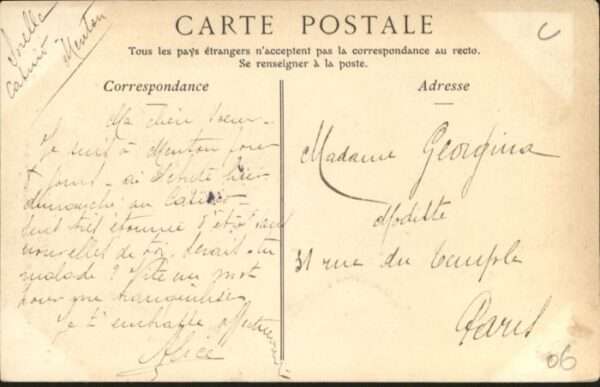 Sorella
Casino
Menton
CARTE POSTALE
Tous les pays étrangers n'acceptent pas la correspondance au recto.
Se renseigner à la poste.
Correspondance
Ma chère soeur -
Je suis à Menton pour
8 jours - ai débuté hier
dimanche au Casino -
suis très étonnée d'être sans
nouvelles de toi. Serais-tu
malade ? Vite un mot
pour me tranquilliser
Je t'embrasse affectueusement
Alice
Adresse
Madame Georgina
Modiste
31 rue du temple
Paris
06